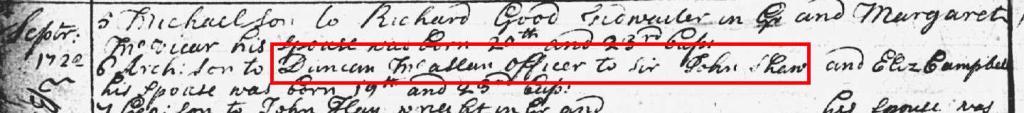 Septr: 5 Michael son to Richard Good Tidwaiter in Gr and Margaret
his spouse was born 20th and 23rd bap:
1722 6 Arch: son to Duncan McCallan officer to Sir John Shaw and Eliz Campbel
his spouse was born 19th and 23d bap:
son to John wright in Gr and his spouse was